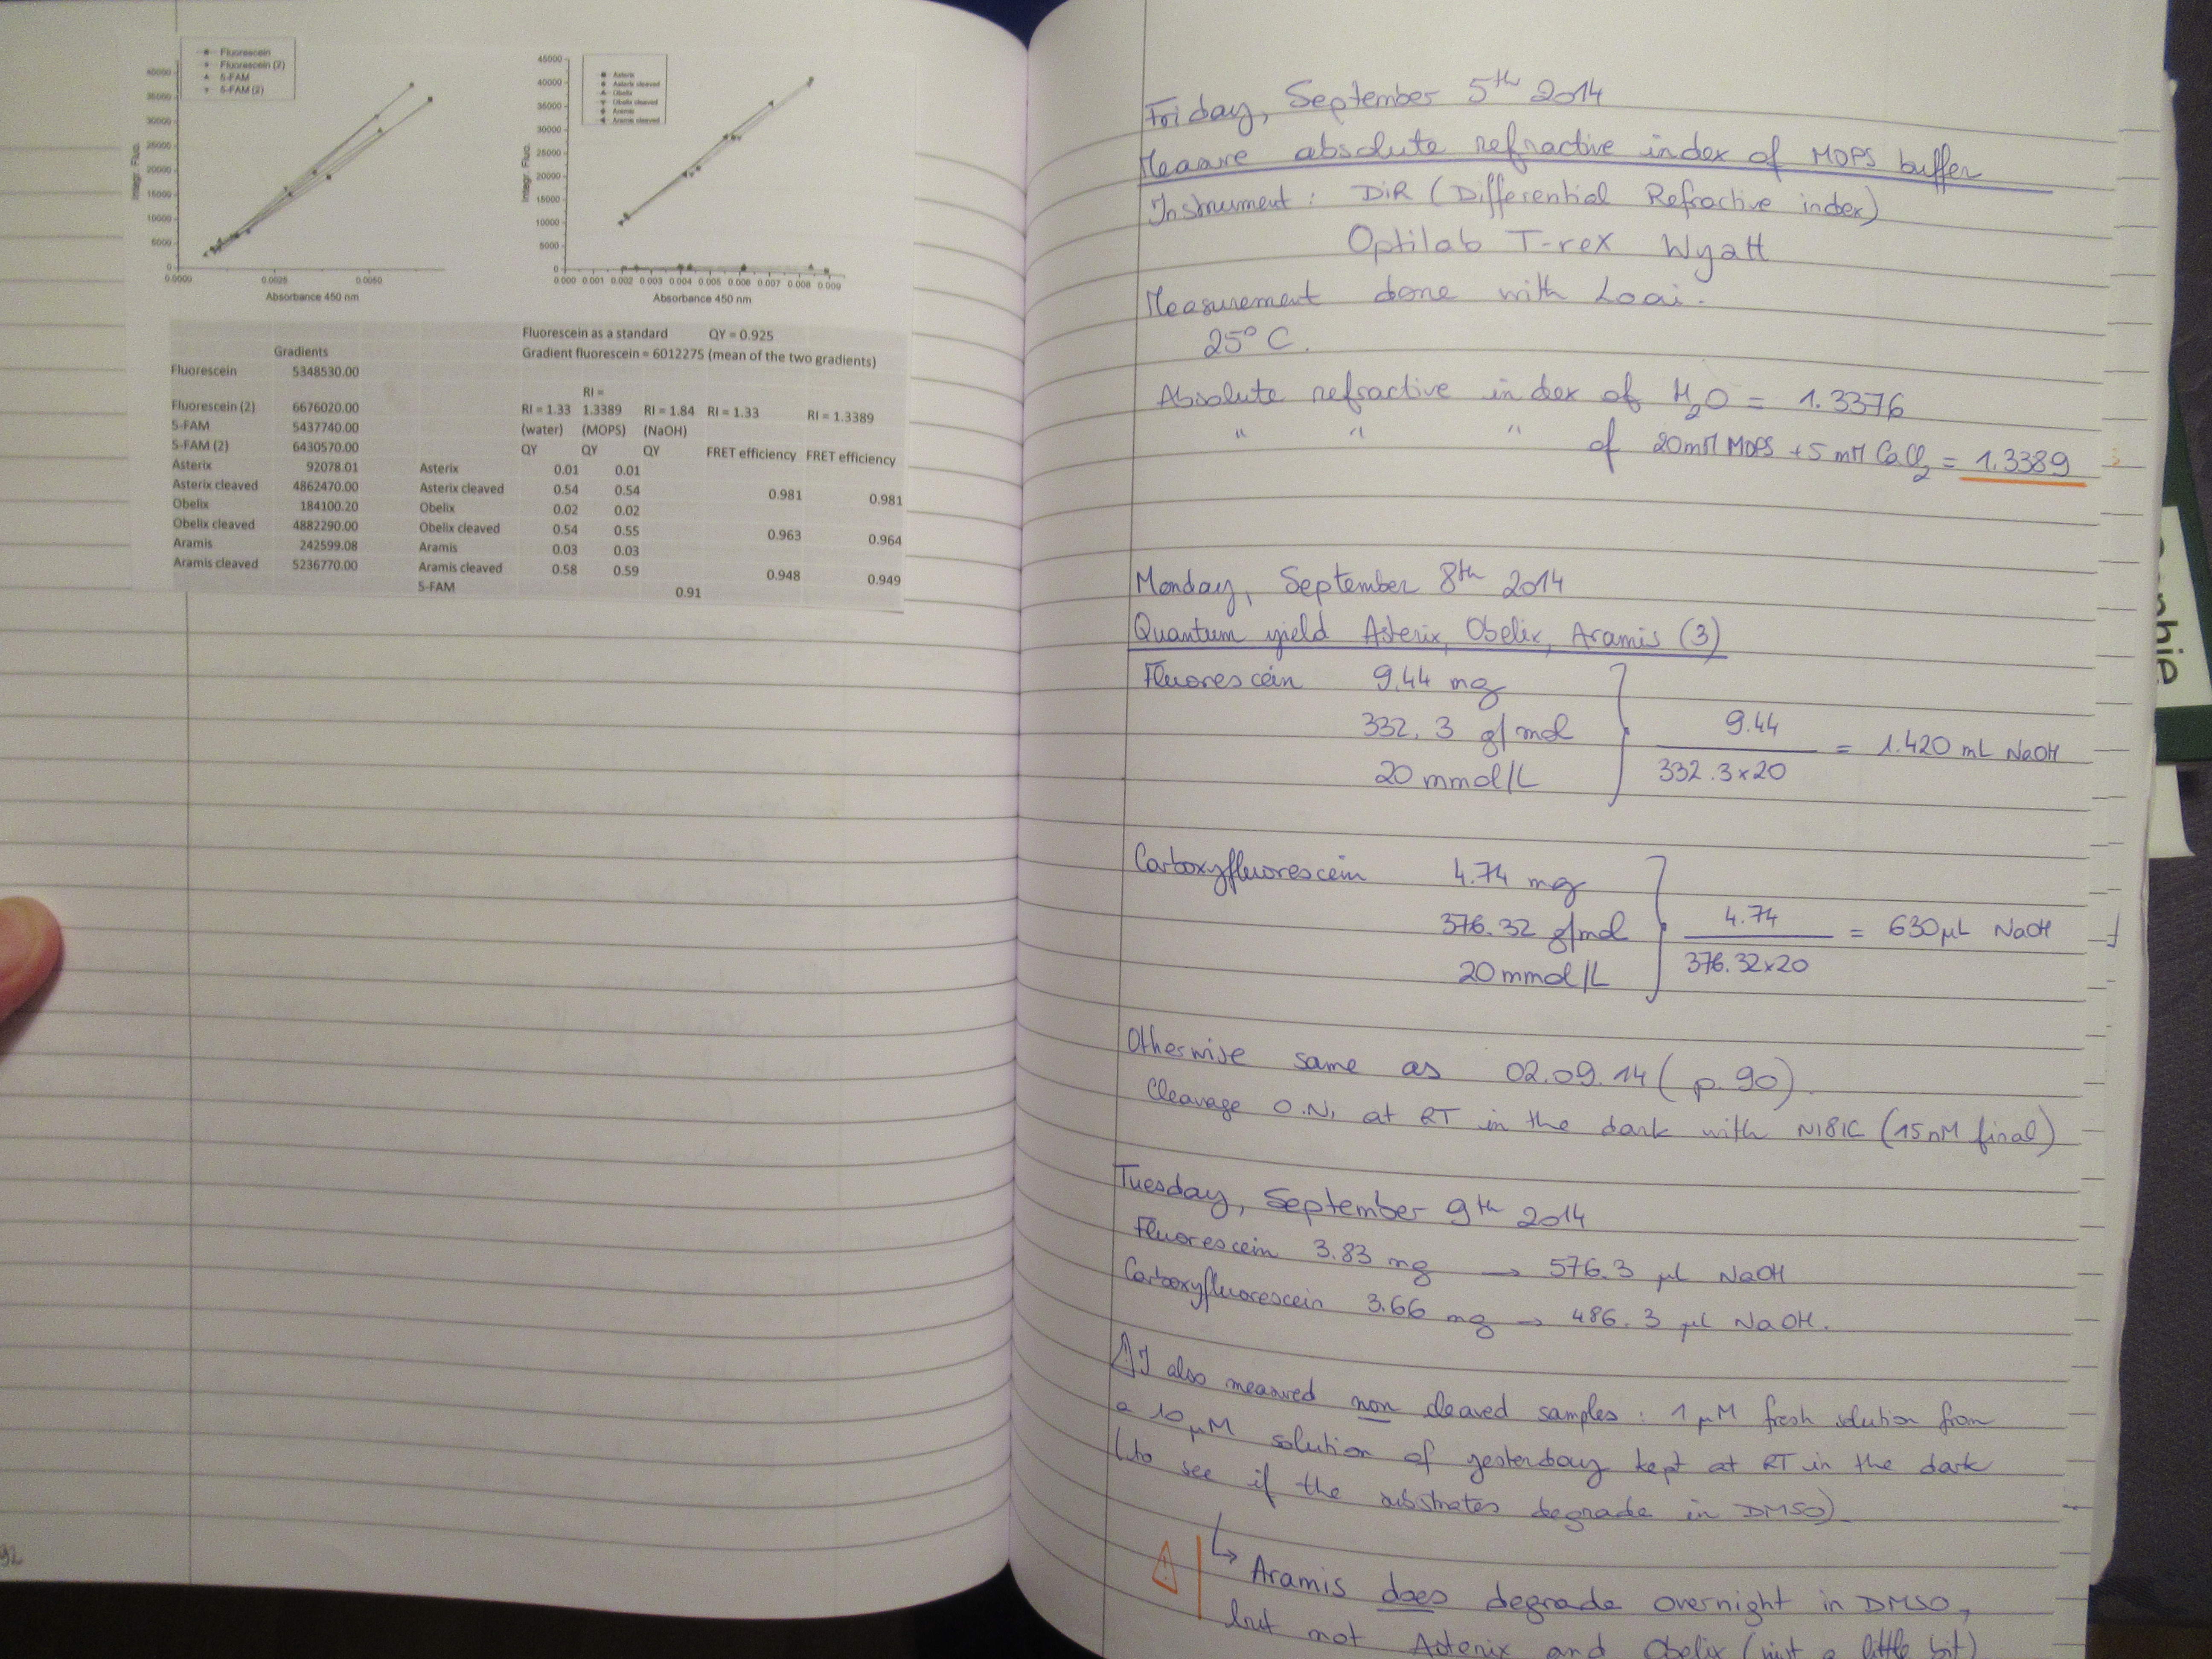 Fluorescein
Fluorescein (2)
5-FAM
5-FAM (2)
40000
35000
30000
25000
20000
15000
10000
5000
0
0.0000 0.0025 0.0050
Integr. Fluo.
Absorbance 450 nm
Asterix
Asterix cleaved
Obelix
Obelix cleaved
Aramis
Aramis cleaved
45000
40000
35000
30000
25000
20000
15000
10000
5000
0
0.000 0.001 0.002 0.003 0.004 0.005 0.006 0.007 0.008 0.009
Integr. Fluo.
Absorbance 450 nm
Fluorescein as a standard QY = 0.925
Gradient fluorescein = 6012275 (mean of the two gradients)
Gradients
Fluorescein 5348530.00
Fluorescein (2) 6676020.00
5-FAM 5437740.00
5-FAM (2) 6430570.00
Asterix 92078.01
Asterix cleaved 4862470.00
Obelix 184100.20
Obelix cleaved 4882290.00
Aramis 242599.08
Aramis cleaved 5236770.00
RI =
RI = 1.33 1.3389 RI = 1.84 RI = 1.33 RI = 1.3389
(water) (MOPS) (NaOH)
QY QY QY FRET efficiency FRET efficiency
Asterix 0.01 0.01
Asterix cleaved 0.54 0.54 0.981 0.981
Obelix 0.02 0.02
Obelix cleaved 0.54 0.55 0.963 0.964
Aramis 0.03 0.03
Aramis cleaved 0.58 0.59 0.948 0.949
5-FAM 0.91
92
Friday, September 5th 2014
Measure absolute refractive index of MOPS buffer
Instrument : DiR (Differential Refractive index)
Optilab T-rex Wyatt
Measurement done with Loai.
25° C.
Absolute refractive index of H2O = 1.3376
" " " of 20mM MOPS + 5 mM CaCl2 = 1.3389
Monday, September 8th 2014
Quantum yield Asterix, Obelix, Aramis (3)
Fluorescein 9.44 mg
332.3 g/mol
20 mmol/L
9.44
332.3x20
= 1.420 mL NaOH
Carboxyfluorescein 4.74 mg
376.32 g/mol
20 mmol/L
4.74
376.32x20
= 630µL NaOH
Otherwise same as 02.09.14 ( p. 90).
Cleavage O.N. at RT in the dark with N181C (15nM final)
Tuesday, September 9th 2014
Fluorescein 3.83 mg → 576.3 µL NaOH
Carboxyfluorescein 3.66 mg → 486.3 µL NaOH.
⚠ I also measured non cleaved samples : 1 µM fresh solution from
a 10 µM solution of yesterday kept at RT in the dark
(to see if the substrates degrade in DMSO).
↳ Aramis does degrade overnight in DMSO,
but not Asterix and Obelix (just a little bit)